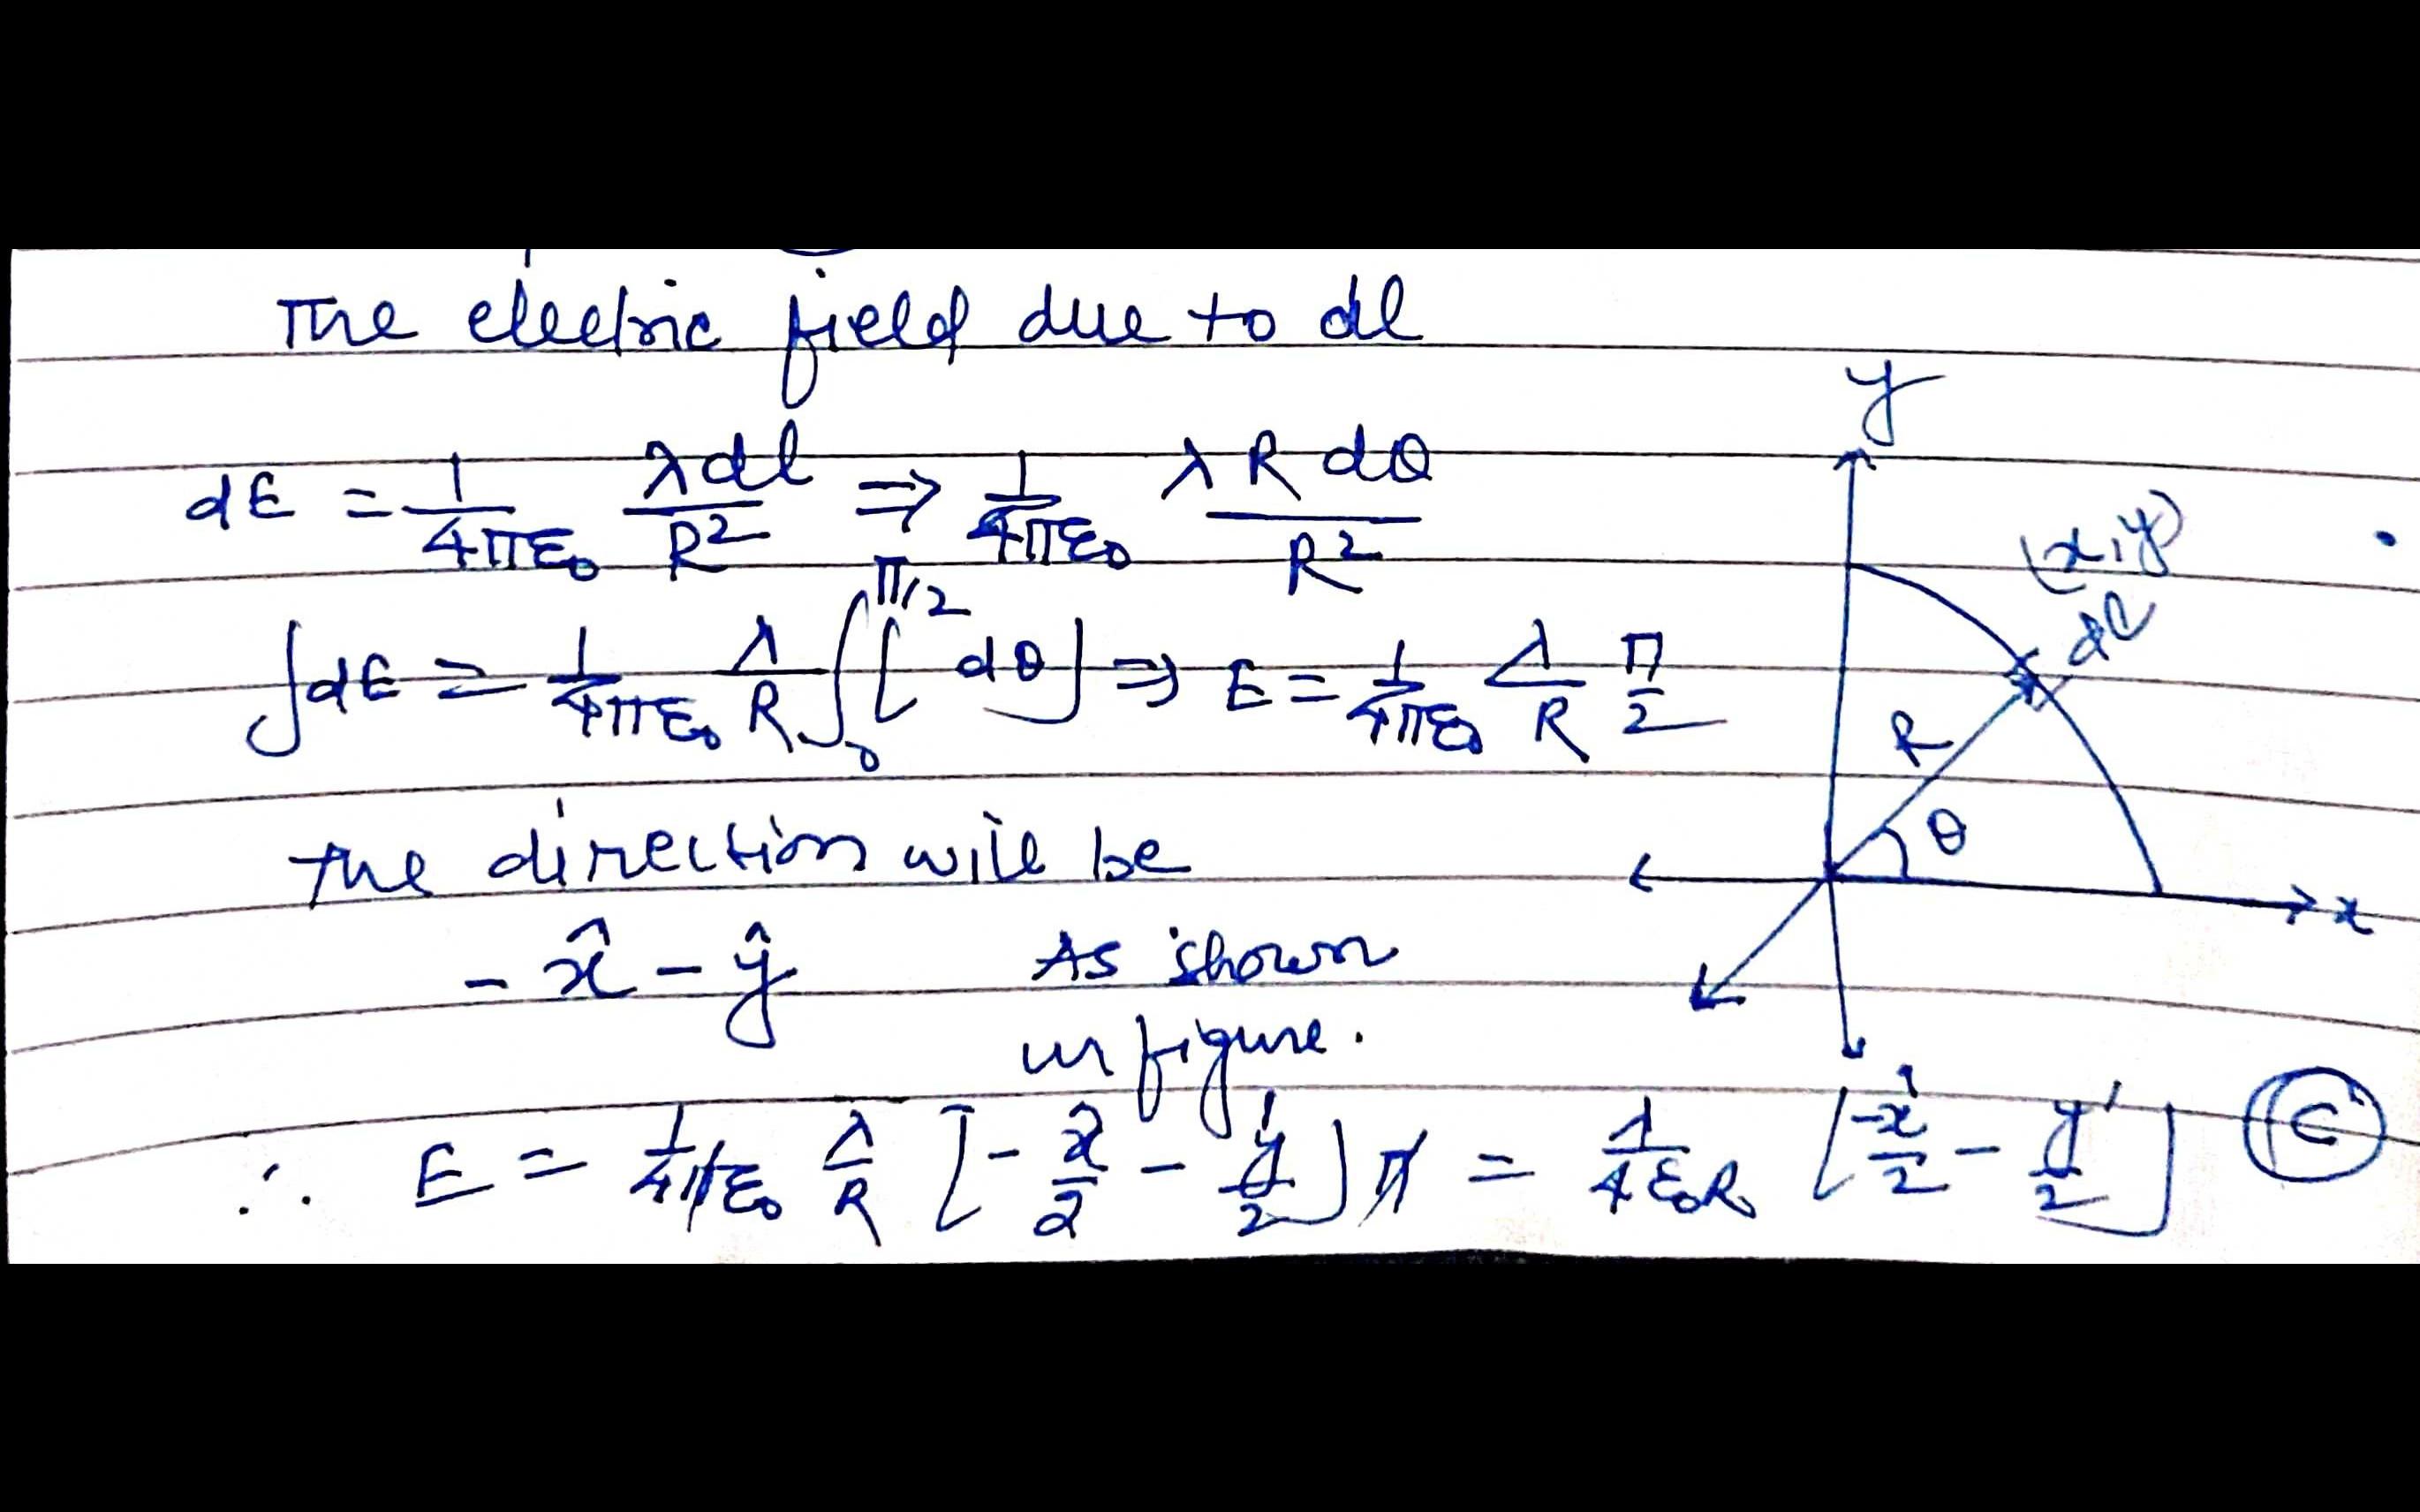 The electric field due to dl
dE = 1/4πε₀ λdl/R² ⇒ 1/4πε₀ λ R dθ/R²
∫dE = 1/4πε₀ λ/R ∫₀^π/2 [dθ] ⇒ E = 1/4πε₀ λ/R π/2
the direction will be
- x̂ - ŷ As shown
in figure.
∴ E = 1/4πε₀ λ/R [- x̂/2 - ŷ/2] π = λ/4ε₀R [-x̂/2 - ŷ/2] C
y
(x, y)
dl
R
θ
x